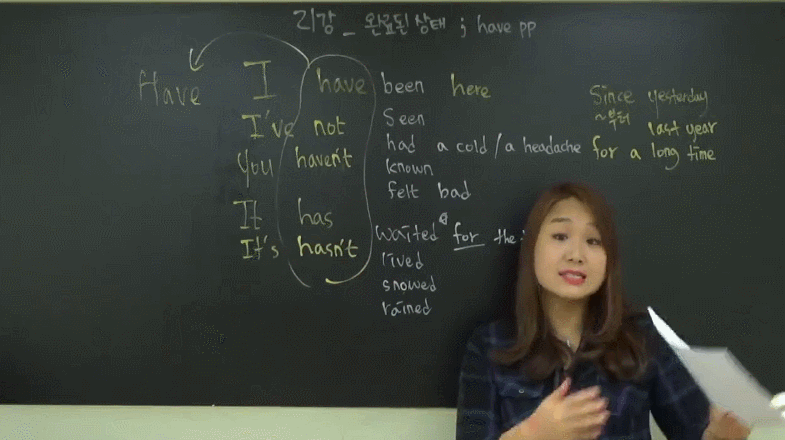 리강 _ 완료된 상태 ; have pp
Have I have been here
I've not seen
You haven't had a cold / a headache
known
felt bad
It has
It's hasn't waited for the
lived
snowed
rained
Since yesterday
~부터 last year
for a long time